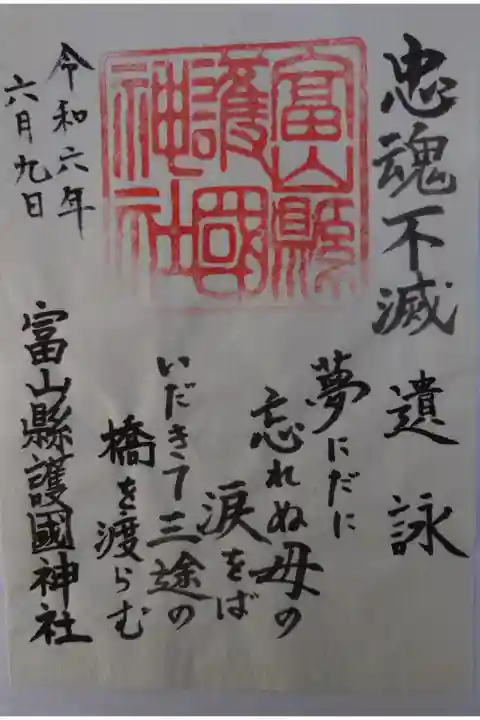 忠魂不滅
遺詠
夢にだに
忘れぬ母の
涙をば
いだきて三途の
橋を渡らむ
富山縣
護國
神社
令和六年
六月九日
富山縣護國神社